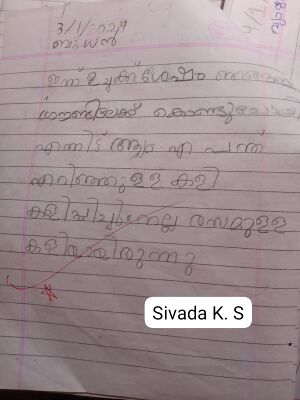 3/1/2024
ബുധൻ
ഇന്ന് ഉച്ചക്ക് ശേഷം ഞങ്ങളെ
ഗ്രൗണ്ടിലേക്ക് കൊണ്ടുപോയി
എന്നിട്ട് പന്ത്
എറിഞ്ഞുള്ള കളി
കളിപ്പിച്ചു നല്ല രസമുള്ള
കളിയായിരുന്നു
Sivada K. S